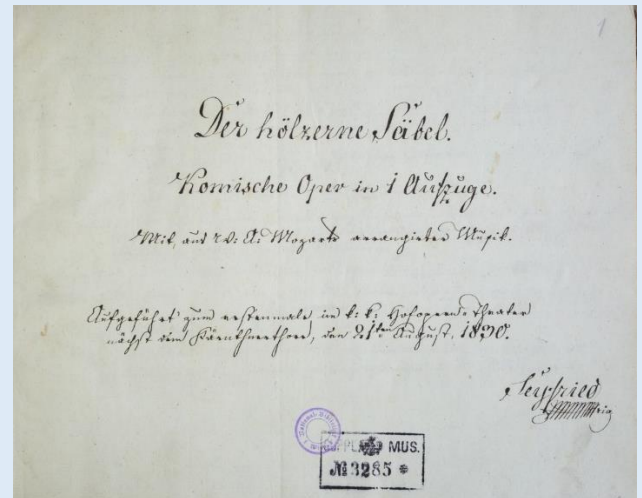 1
Der hölzerne Säbel.
Komische Oper in 1 Aufzuge.
Mit, aus W: A: Mozarts arrangirter Musik.
Aufgeführt zum erstenmale im k: k: Hofopern-Theater
nächst dem Kärnthnerthore, den 21ten August, 1830.
Seyfried
MUS.
№ 3285